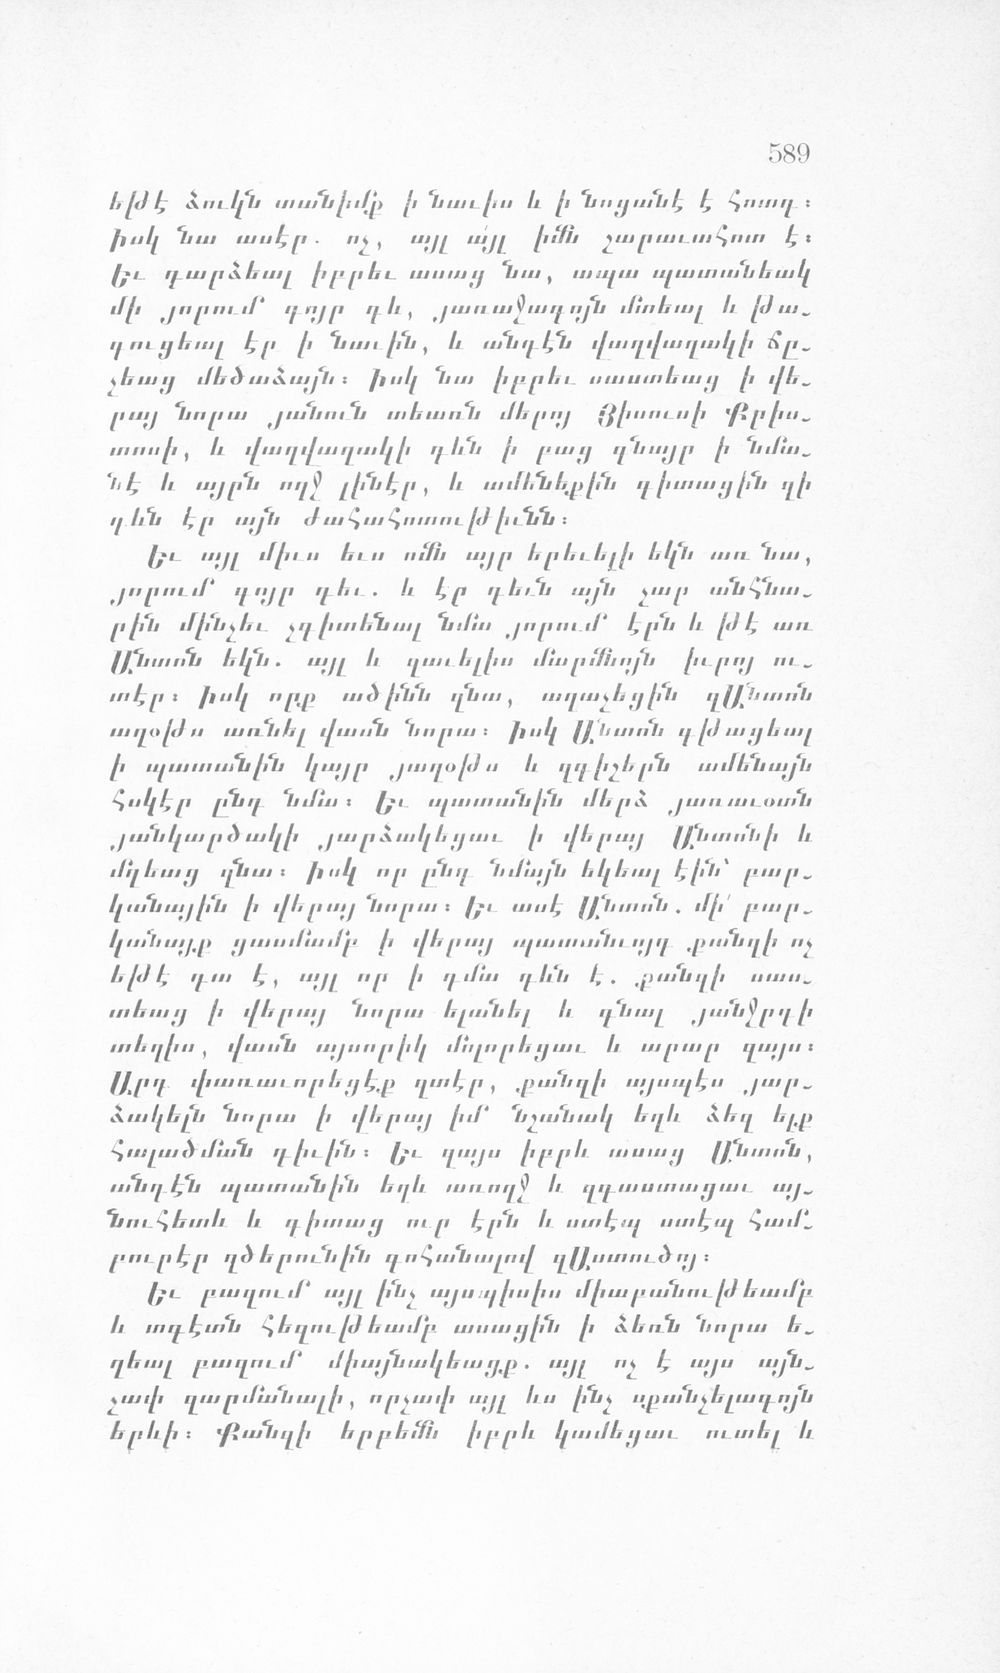 589
եթէ ձուկն տանիմք ի նաւիս և ի նոցանէ է հոտդ։
Իսկ նա ասէր. ոչ, այլ ա՛յլ իմն չարաւահոտ է։
Եւ դարձեալ իբրեւ ասաց նա, ապա պատանեակ
մի յորում գոյր դև, յառաջագոյն մտեալ և թա֊
գուցեալ էր ի նաւին, և անդէն վաղվաղակի ճը֊
չեաց մեծաձայն։ Իսկ նա իբրեւ սաստեաց ի վե֊
րայ նորա յանուն տեառն մերոյ Յիսուսի Քրիս֊
տոսի, և վաղվաղակի դևն ի բաց գնայր ի նմա֊
նէ և այրն ողջ լինէր, և ամենեքին գիտացին զի
դևն էր այն ժահահոտութիւնն։
Եւ այլ միւս եւս ոմն այր երեւելի եկն առ նա,
յորում գոյր դեւ. և էր դեւն այն չար անհնա֊
րին մինչեւ չգիտենալ նմա յորում էրն և թէ առ
Անտոն եկն. այլ և զաւելիս մարմնոյն իւրոյ ու֊
տէր։ Իսկ որք ածինն զնա, աղաչեցին զԱնտոն
աղօթս առնել վասն նորա։ Իսկ Անտոն գթացեալ
ի պատանին կայր յաղօթս և զգիշերն ամենայն
հսկէր ընդ նմա։ Եւ պատանին մերձ յառաւօտն
յանկարծակի յարձակեցաւ ի վերայ Անտոնի և
մղեաց զնա։ Իսկ որ ընդ նմայն եկեալ էին՝ բար֊
կանային ի վերայ նորա։ Եւ ասէ Անտոն. մի՛ բար֊
կանայք ցասմամբ ի վերայ պատանւոյդ քանզի ոչ
եթէ դա է, այլ որ ի դմա դևն է. քանզի սաս֊
տեաց ի վերայ նորա ելանել և գնալ յանջրդի
տեղիս, վասն այսորիկ մոլորեցաւ և արար զայս։
Արդ փառաւորեցէք զտէր, քանզի այսպէս յար֊
ձակելն նորա ի վերայ իմ նշանակ եղև ձեզ ելք
հալածման դիւին։ Եւ զայս իբրև ասաց Անտոն,
անդէն պատանին եղև առողջ և զգաստացաւ այ֊
նուհետև և գիտաց ուր էրն և ստէպ ստէպ համ֊
բուրէր զծերունին գոհանալով զԱստուծոյ։
Եւ բազում այլ ինչ այսպիսիս միաբանութեամբ
և տգէտն հեզութեամբ ասացին ի ձեռն նորա ե֊
ղեալ բազում միայնակեացք. այլ ոչ է այս այն֊
չափ զարմանալի, որչափ այլ ևս ինչ սքանչելագոյն
երևի։ Քանզի երբեմն իբրև կամեցաւ ուտել և